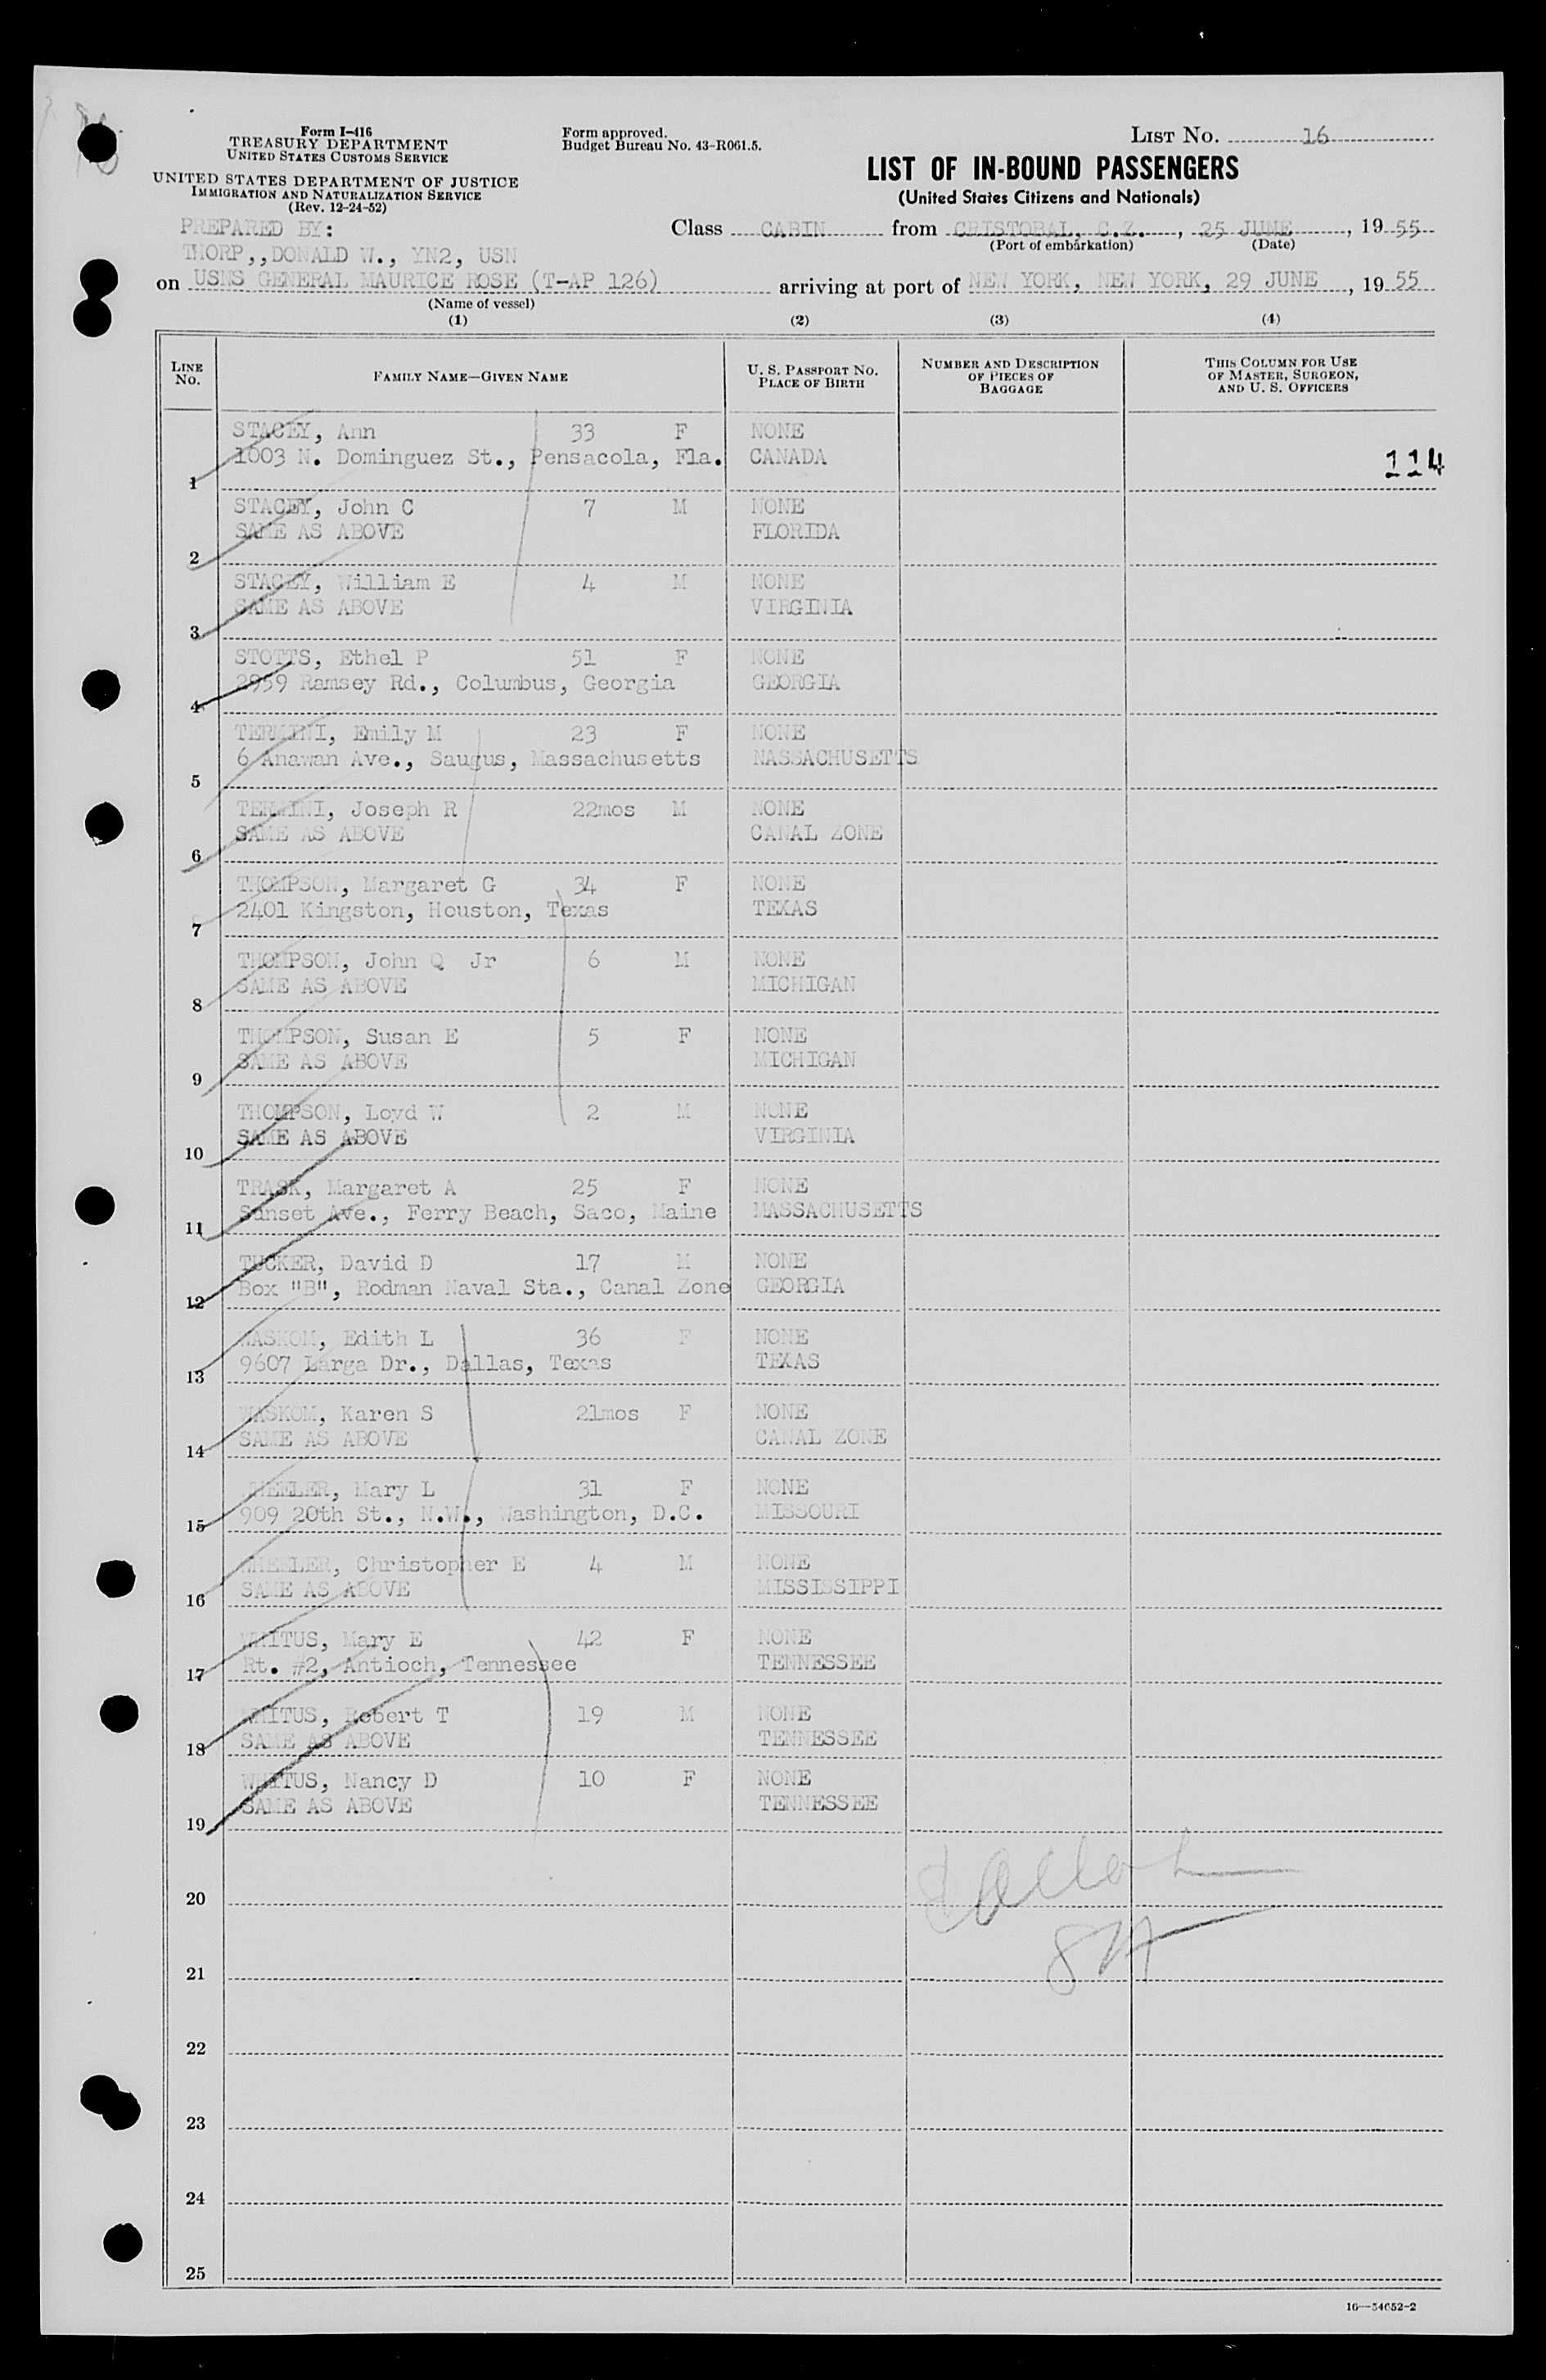 Form I-416
TREASURY DEPARTMENT
UNITED STATES CUSTOMS SERVICE
UNITED STATES DEPARTMENT OF JUSTICE
IMMIGRATION AND NATURALIZATION SERVICE
(Rev. 12-24-52)
Form approved.
Budget Bureau No. 43-R061.5.
LIST NO. 16
LIST OF IN-BOUND PASSENGERS
(United States Citizens and Nationals)
PREPARED BY:
THORP,,DONALD W., YN2, USN
Class CABIN from CRISTOBAL, C.Z., 25 JUNE, 1955
(Port of embarkation) (Date)
on USNS GENERAL MAURICE ROSE (T-AP 126) arriving at port of NEW YORK, NEW YORK, 29 JUNE, 1955
(Name of vessel)
(1) (2) (3) (4)
LINE NO. FAMILY NAME—GIVEN NAME U. S. PASSPORT NO. PLACE OF BIRTH NUMBER AND DESCRIPTION OF PIECES OF BAGGAGE THIS COLUMN FOR USE OF MASTER, SURGEON, AND U. S. OFFICERS
STACEY, Ann 33 F NONE
1003 N. Dominguez St., Pensacola, Fla. CANADA 114
1
STACEY, John C 7 M NONE
SAME AS ABOVE FLORIDA
2
STACEY, William E 4 M NONE
SAME AS ABOVE VIRGINIA
3
STOTTS, Ethel P 51 F NONE
2959 Ramsey Rd., Columbus, Georgia GEORGIA
4
TERMINI, Emily M 23 F NONE
6 Anawan Ave., Saugus, Massachusetts NASSACHUSETTS
5
TERMINI, Joseph R 22mos M NONE
SAME AS ABOVE CANAL ZONE
6
THOMPSON, Margaret G 34 F NONE
2401 Kingston, Houston, Texas TEXAS
7
THOMPSON, John Q Jr 6 M NONE
SAME AS ABOVE MICHIGAN
8
THOMPSON, Susan E 5 F NONE
SAME AS ABOVE MICHIGAN
9
THOMPSON, Loyd W 2 M NONE
SAME AS ABOVE VIRGINIA
10
TRASK, Margaret A 25 F NONE
Sunset Ave., Ferry Beach, Saco, Maine MASSACHUSETTS
11
TUCKER, David D 17 M NONE
Box "B", Rodman Naval Sta., Canal Zone GEORGIA
12
WASKOM, Edith L 36 F NONE
9607 Larga Dr., Dallas, Texas TEXAS
13
WASKOM, Karen S 21mos F NONE
SAME AS ABOVE CANAL ZONE
14
WHEELER, Mary L 31 F NONE
909 20th St., N.W., Washington, D.C. MISSOURI
15
WHEELER, Christopher E 4 M NONE
SAME AS ABOVE MISSISSIPPI
16
WHITUS, Mary E 42 F NONE
Rt. #2, Antioch, Tennessee TENNESSEE
17
WHITUS, Robert T 19 M NONE
SAME AS ABOVE TENNESSEE
18
WHITUS, Nancy D 10 F NONE
SAME AS ABOVE TENNESSEE
19
20
21
22
23
24
25
16—54652-2